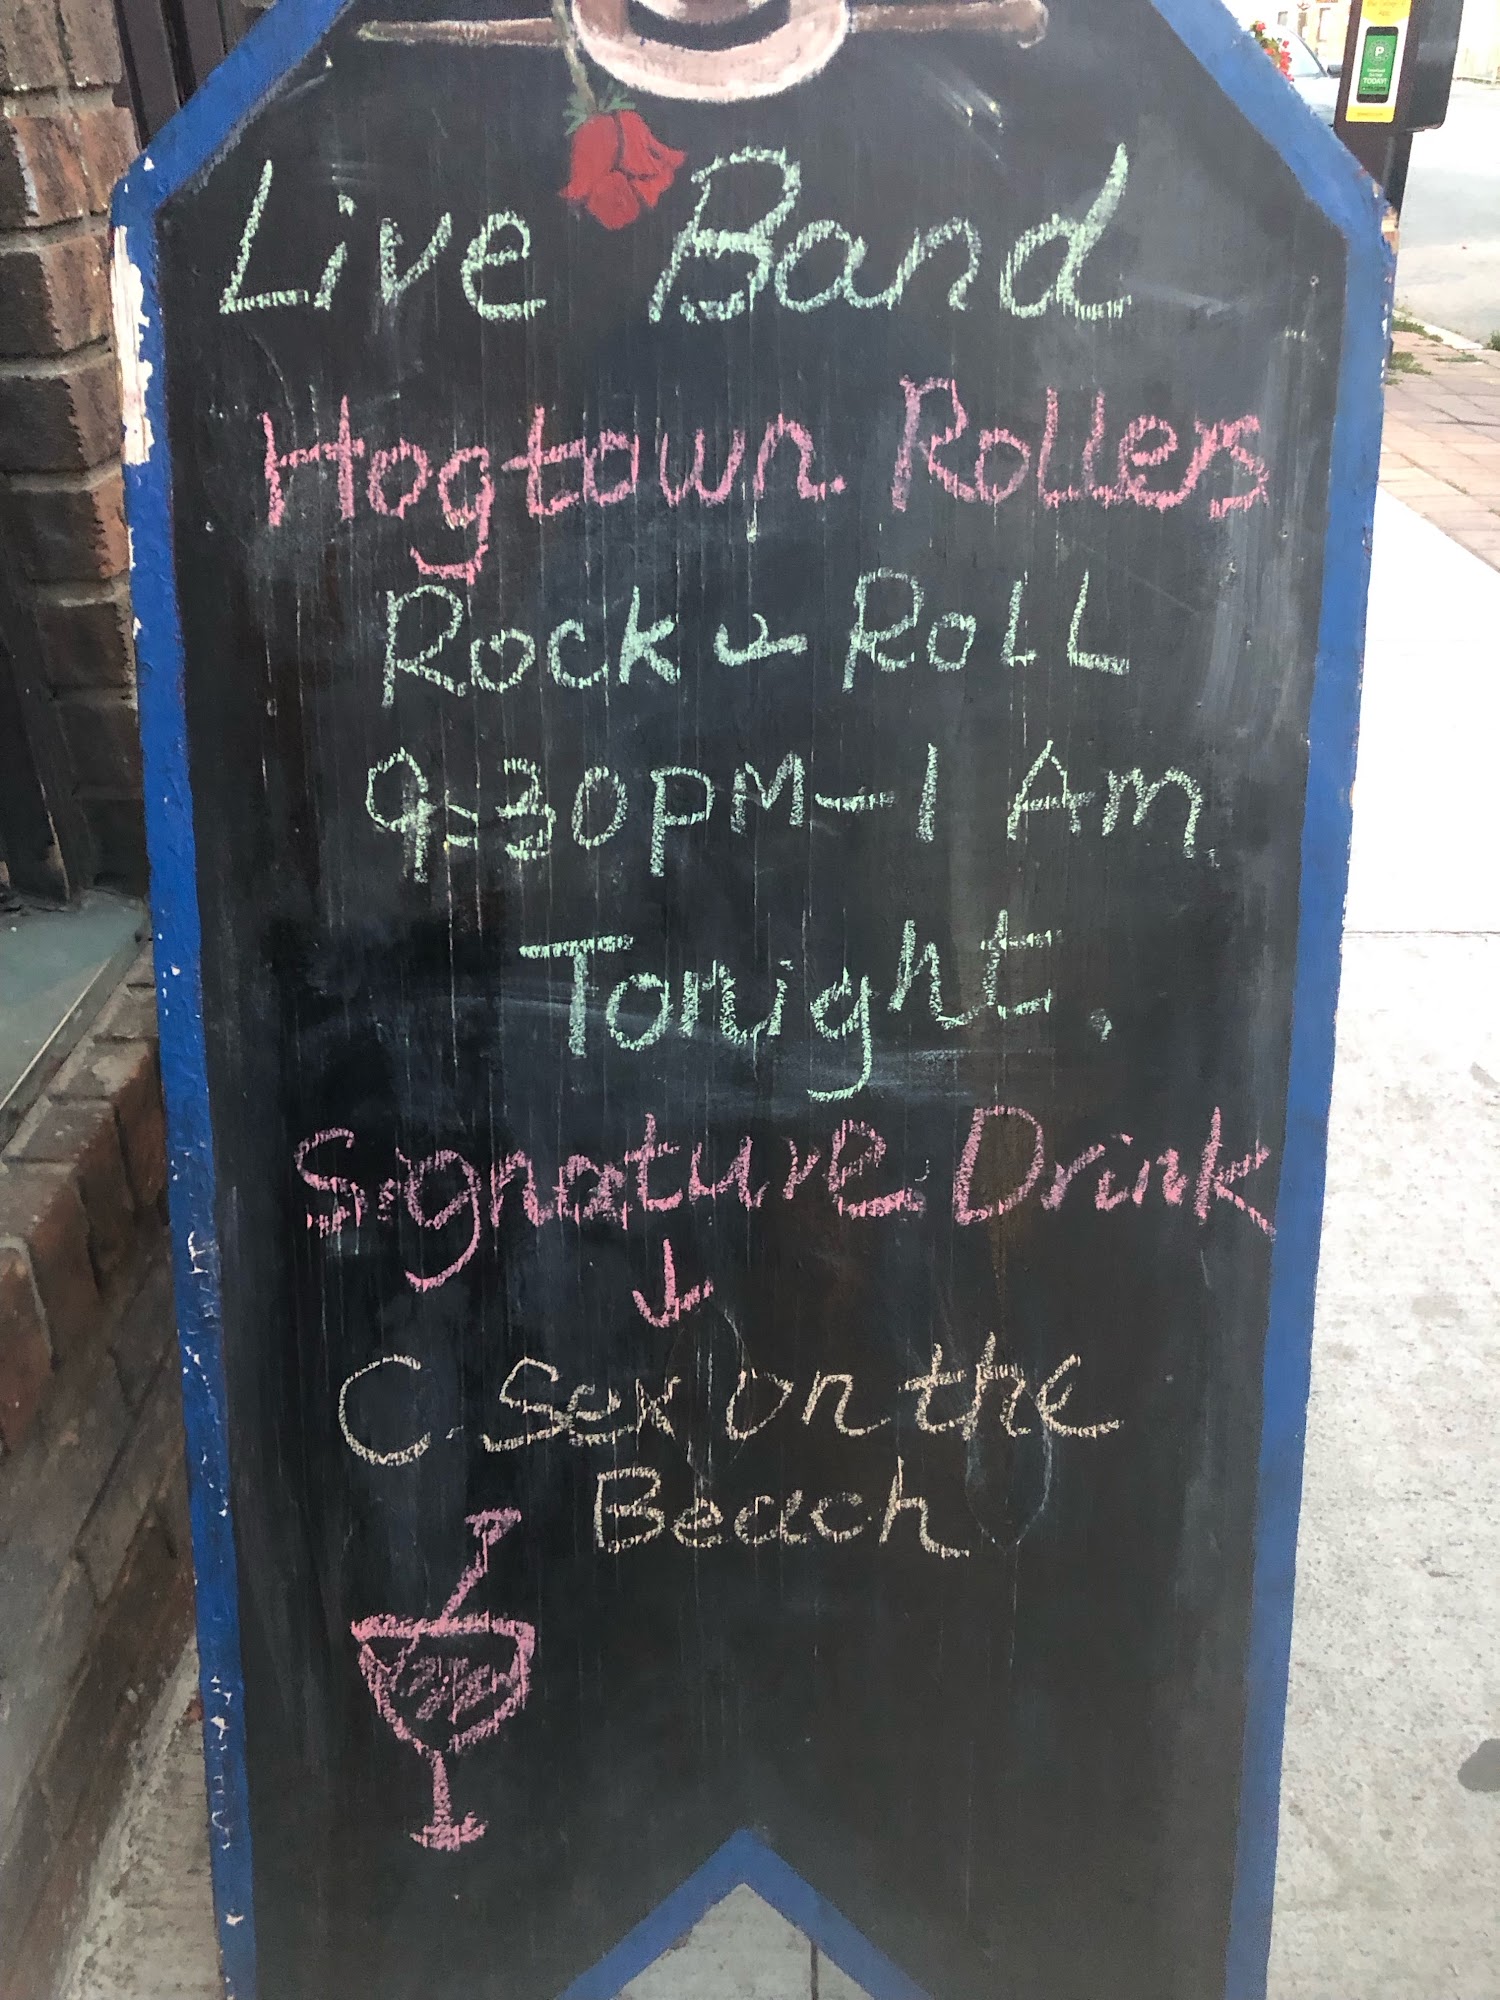 Live Band
Hogtown Rollers
Rock & Roll
9:30PM-1 AM
Tonight.
Signature Drink
↓
C. Sex on the
Beach
TODAY!